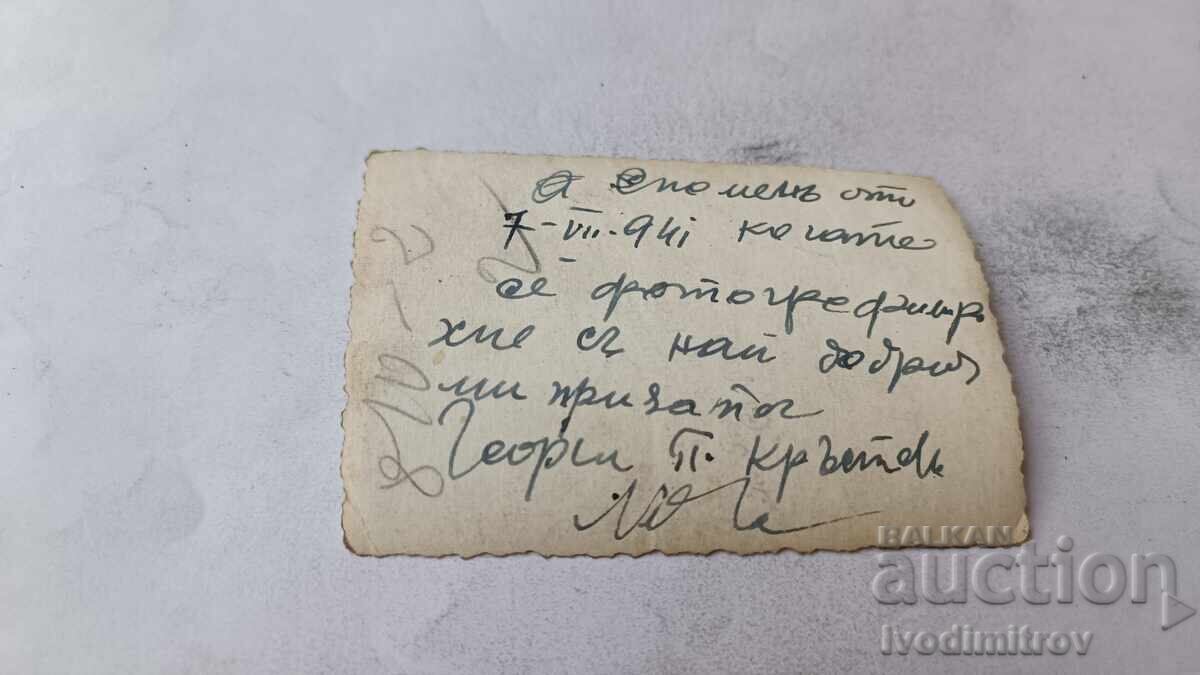 Споменъ от
7-VII.941 когато
се фотографира
хме съ най добрия
ми приятел
Георги П. Кръстев
8/10-2
BALKAN
auction
Ivodimitrov